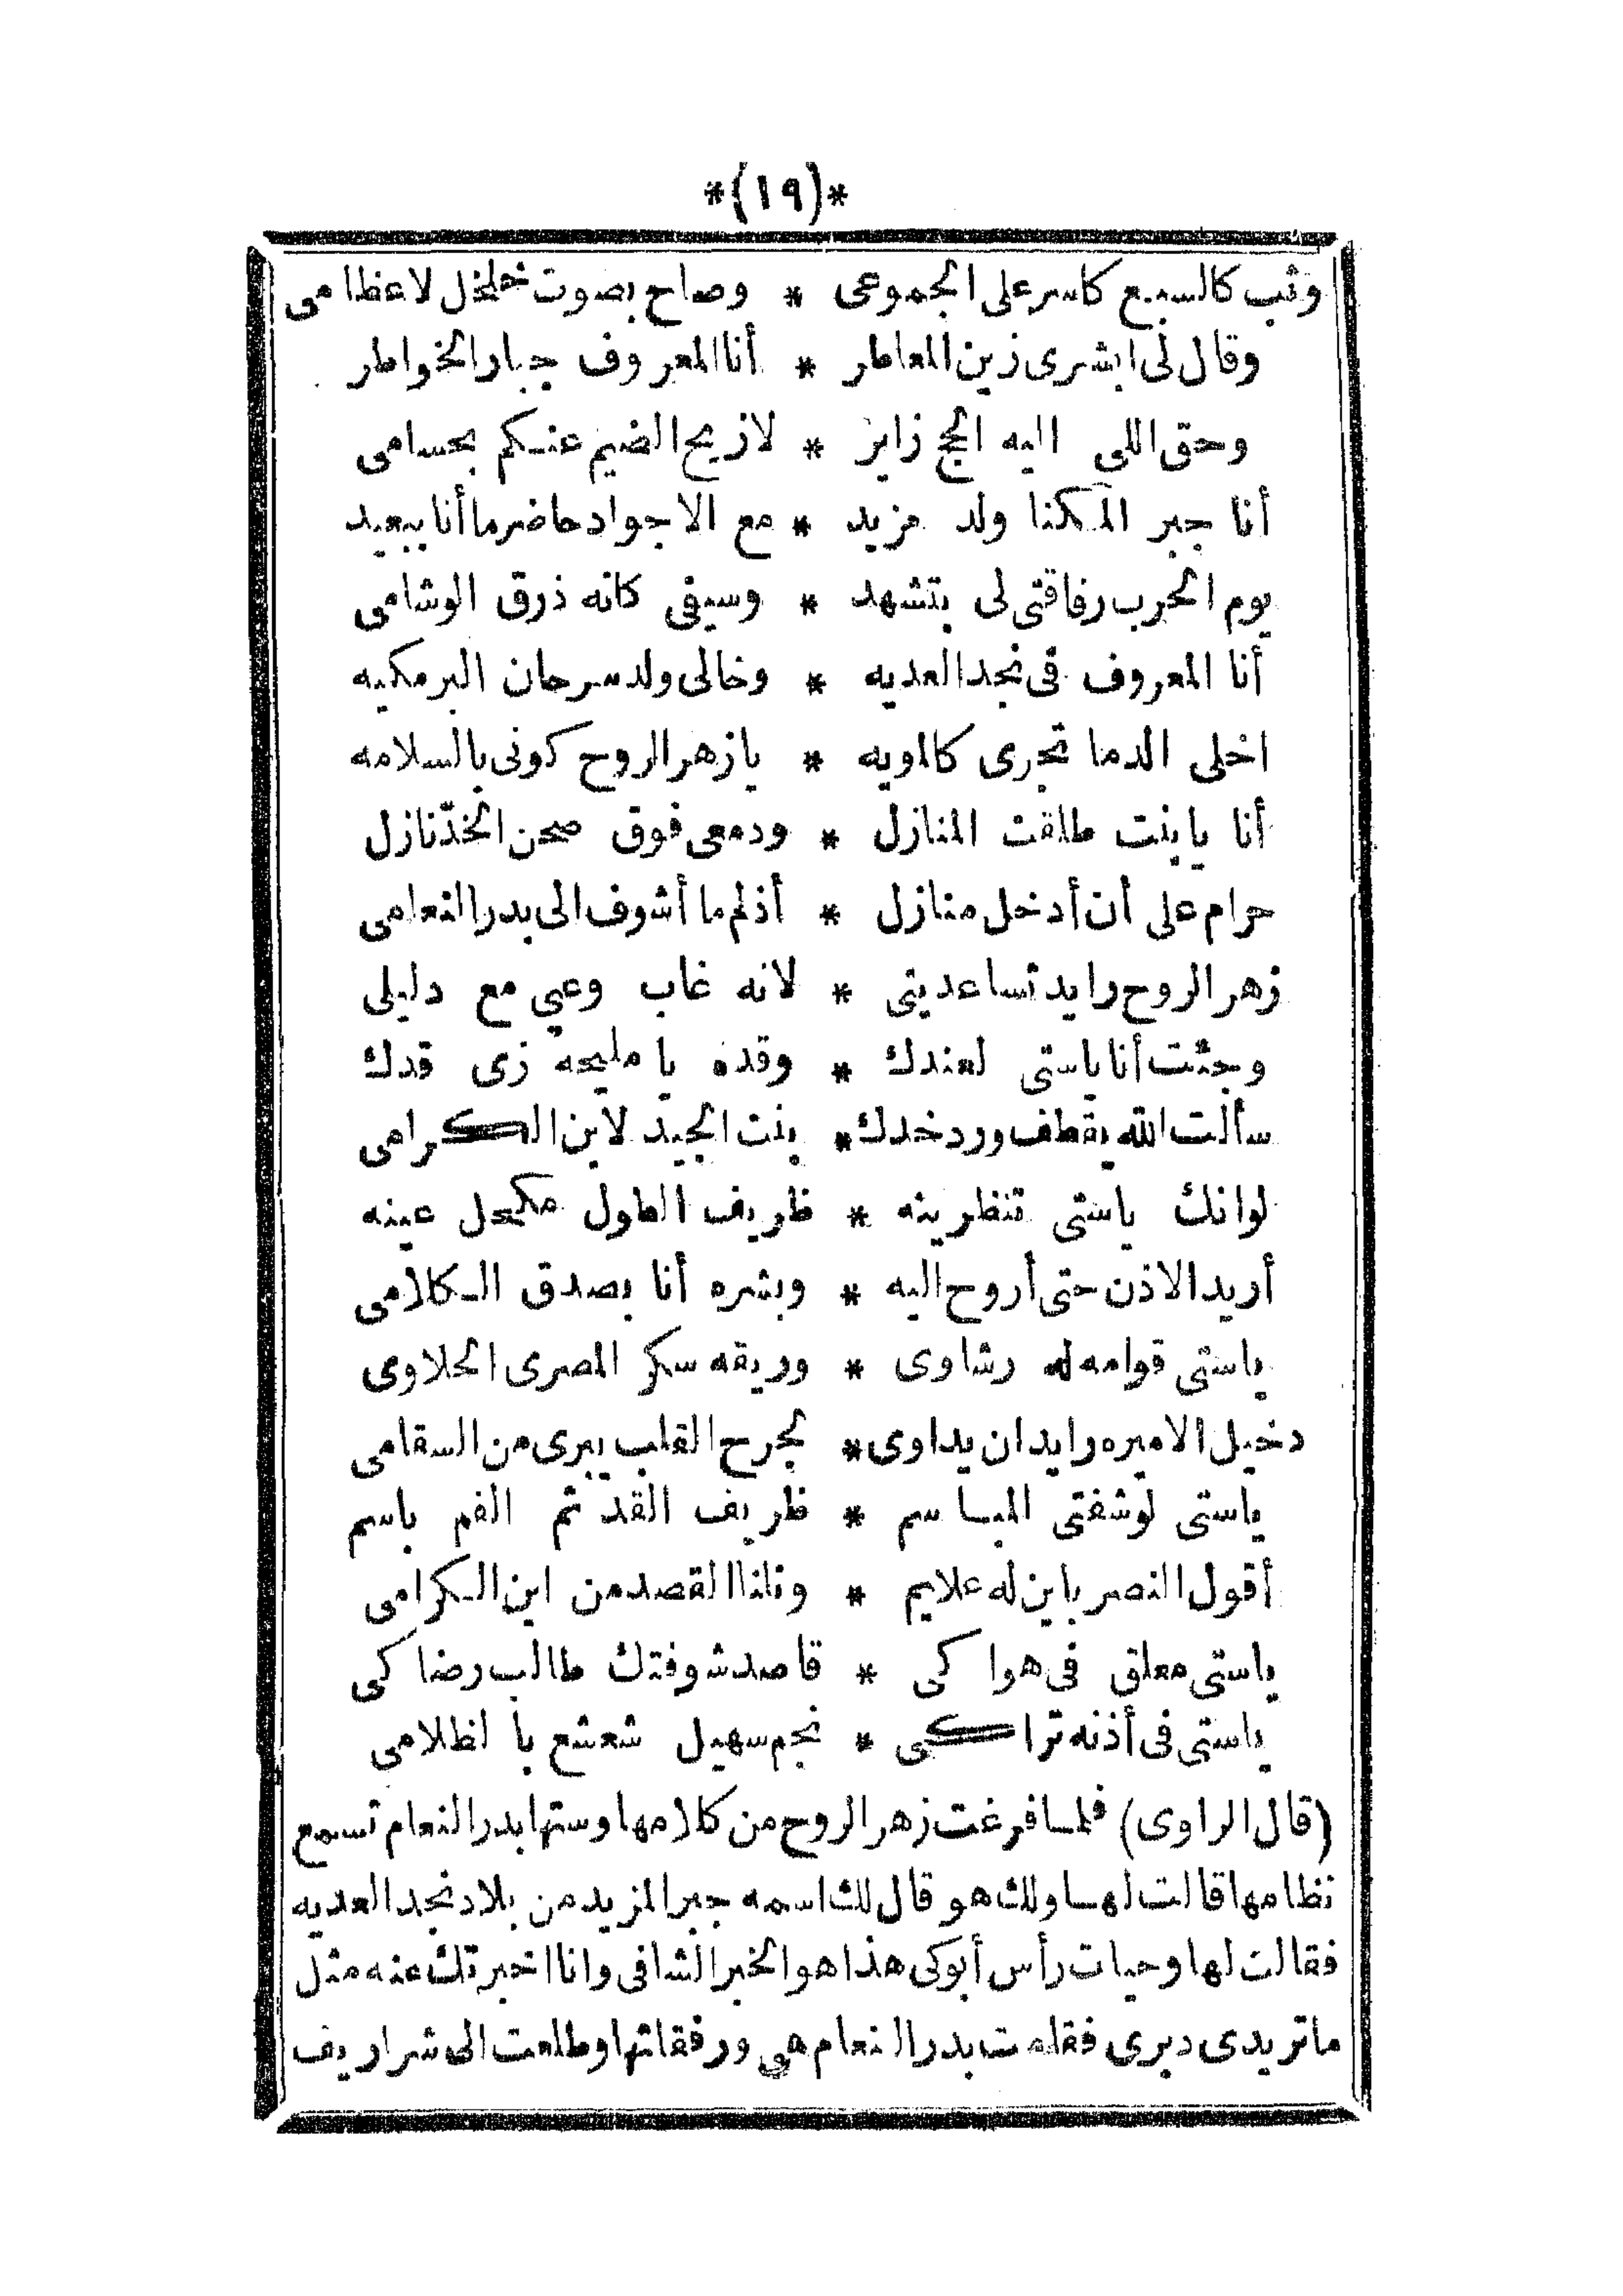 *(١٩)*
وثب كالسبع كاسر على الجموعى * وصاح بصوت خلخل لاعظامى
وقال لى ابشرى زين المعاطر * أنا المعروف جبار الخواطر
وحق اللى اليه الحج زاير * لازيح الضيم عنكم بحسامى
أنا جبر المكنا ولد مزيد * مع الاجواد حاضر ما أنا ببعيد
يوم الحرب رفاقتى لى بتشهد * وسيفى كانه ذرق الوشامى
أنا المعروف فى نجد العديه * وخالى ولد سرحان البرمكيه
اخلى الدما تجرى كالمويه * يازهر الروح كونى بالسلامه
أنا يا بنت طلقت المنازل * ودمعى فوق صحن الخدّ نازل
حرام على أن أدخل منازل * أذلم ما أشوف الى بدر النعامى
زهر الروح رايد تساعدينى * لانه غاب وعيى مع دليلى
وجئت أنا ياستى لعندك * وقده يا مليحه زى قدك
سألت الله يقطف ورد خدك * بنت الجيد لابن الكرامى
لوانك ياستى تنظرينه * ظريف الطول مكيحل عينه
أريد الاذن حتى أروح اليه * وبشره أنا بصدق الكلامى
ياستى قوامه له رشاوى * وريقه سكر المصرى الحلاوى
دخيل الاميره رايد ان يداوى * لجرح القلب يبرى من السقامى
ياستى لوشفتى المباسم * ظريف القدّ ثم الفم باسم
أقول النصر باين له علايم * ونلنا القصد من ابن الكرامى
ياستى معلق فى هواكى * قاصد شوفتك طالب رضاكى
ياستى فى أذنه تراكى * نجم سهيل شعشع با لظلامى
(قال الراوى) فلما فرغت زهر الروح من كلامها وستها بدر النعام تسمع
نظامها قالت لها ولك هو قال لك اسمه جبر المزيد من بلاد نجد العديه
فقالت لها وحيات رأس أبوكى هذا هو الخبر الشافى وانا اخبرتك عنه مثل
ماتريدى دبرى فقامت بدر النعام هى ورفقاتها وطلعت الى شراريف